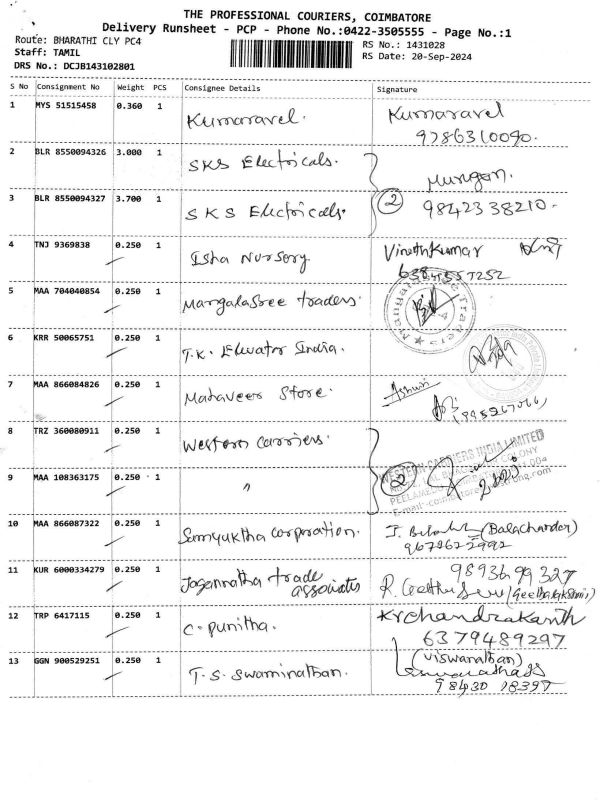 THE PROFESSIONAL COURIERS, COIMBATORE
Delivery Runsheet - PCP - Phone No.:0422-3505555 - Page No.:1
Route: BHARATHI CLY PC4
RS No.: 1431028
Staff: TAMIL
RS Date: 20-Sep-2024
DRS No.: DCJB143102801
S No Consignment No Weight PCS Consignee Details Signature
1 MYS 51515458 0.360 1 Kumaravel. Kumaravel
9786310090.
2 BLR 8550094326 3.000 1 SKS Electricals. Murugan.
3 BLR 8550094327 3.700 1 SKS Electricals. 2 9842338210.
4 TNJ 9369838 0.250 1 Isha Nursery Vinothkumar
5 MAA 704040854 0.250 1 Mangalasree traders.
Mangalasree Traders
6 KRR 50065751 0.250 1 T.K. Elevator India.
7 MAA 866084826 0.250 1 Mahaveer Store.
8 TRZ 360080911 0.250 1 Western carriers.
WESTERN CARRIERS INDIA LIMITED
9 MAA 108363175 0.250 1 " 2
10 MAA 866087322 0.250 1 Samyuktha corporation. (Balachander)
11 KUR 6000334279 0.250 1 Jagannatha trade
associates
9893699327
12 TRP 6417115 0.250 1 C. Punitha. Krchandrakanth
6379489297
13 GGN 900529251 0.250 1 T. S. Swaminathan. (Viswanathan)
98430 18397